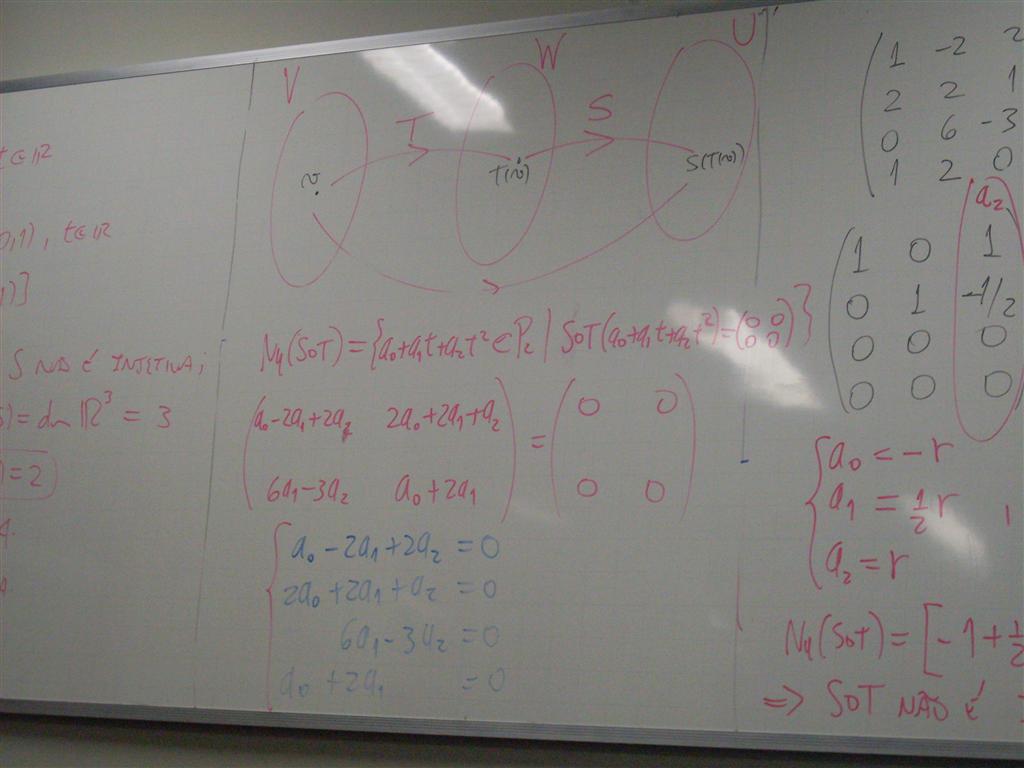 t∈ℝ
0,1), t∈ℝ
)]
S NÃO É INJETIVA;
)= dim ℝ³ = 3
)=2
V W U
T S
v T(v) S(T(v))
Nu(SoT) = {a₀+a₁t+a₂t² ∈ P₂ | SoT(a₀+a₁t+a₂t²) = (0 0
0 0)}
(a₀-2a₁+2a₂ 2a₀+2a₁+a₂
6a₁-3a₂ a₀+2a₁) = (0 0
0 0)
{a₀-2a₁+2a₂ = 0
2a₀+2a₁+a₂ = 0
6a₁-3a₂ = 0
a₀+2a₁ = 0
(1 -2 2
2 2 1
0 6 -3
1 2 0
a₂
(1 0 1
0 1 -1/2
0 0 0
0 0 0)
{a₀ = -r
a₁ = 1/2 r ,
a₂ = r
Nu(SoT) = [-1+1/2
⇒ SOT NÃO É